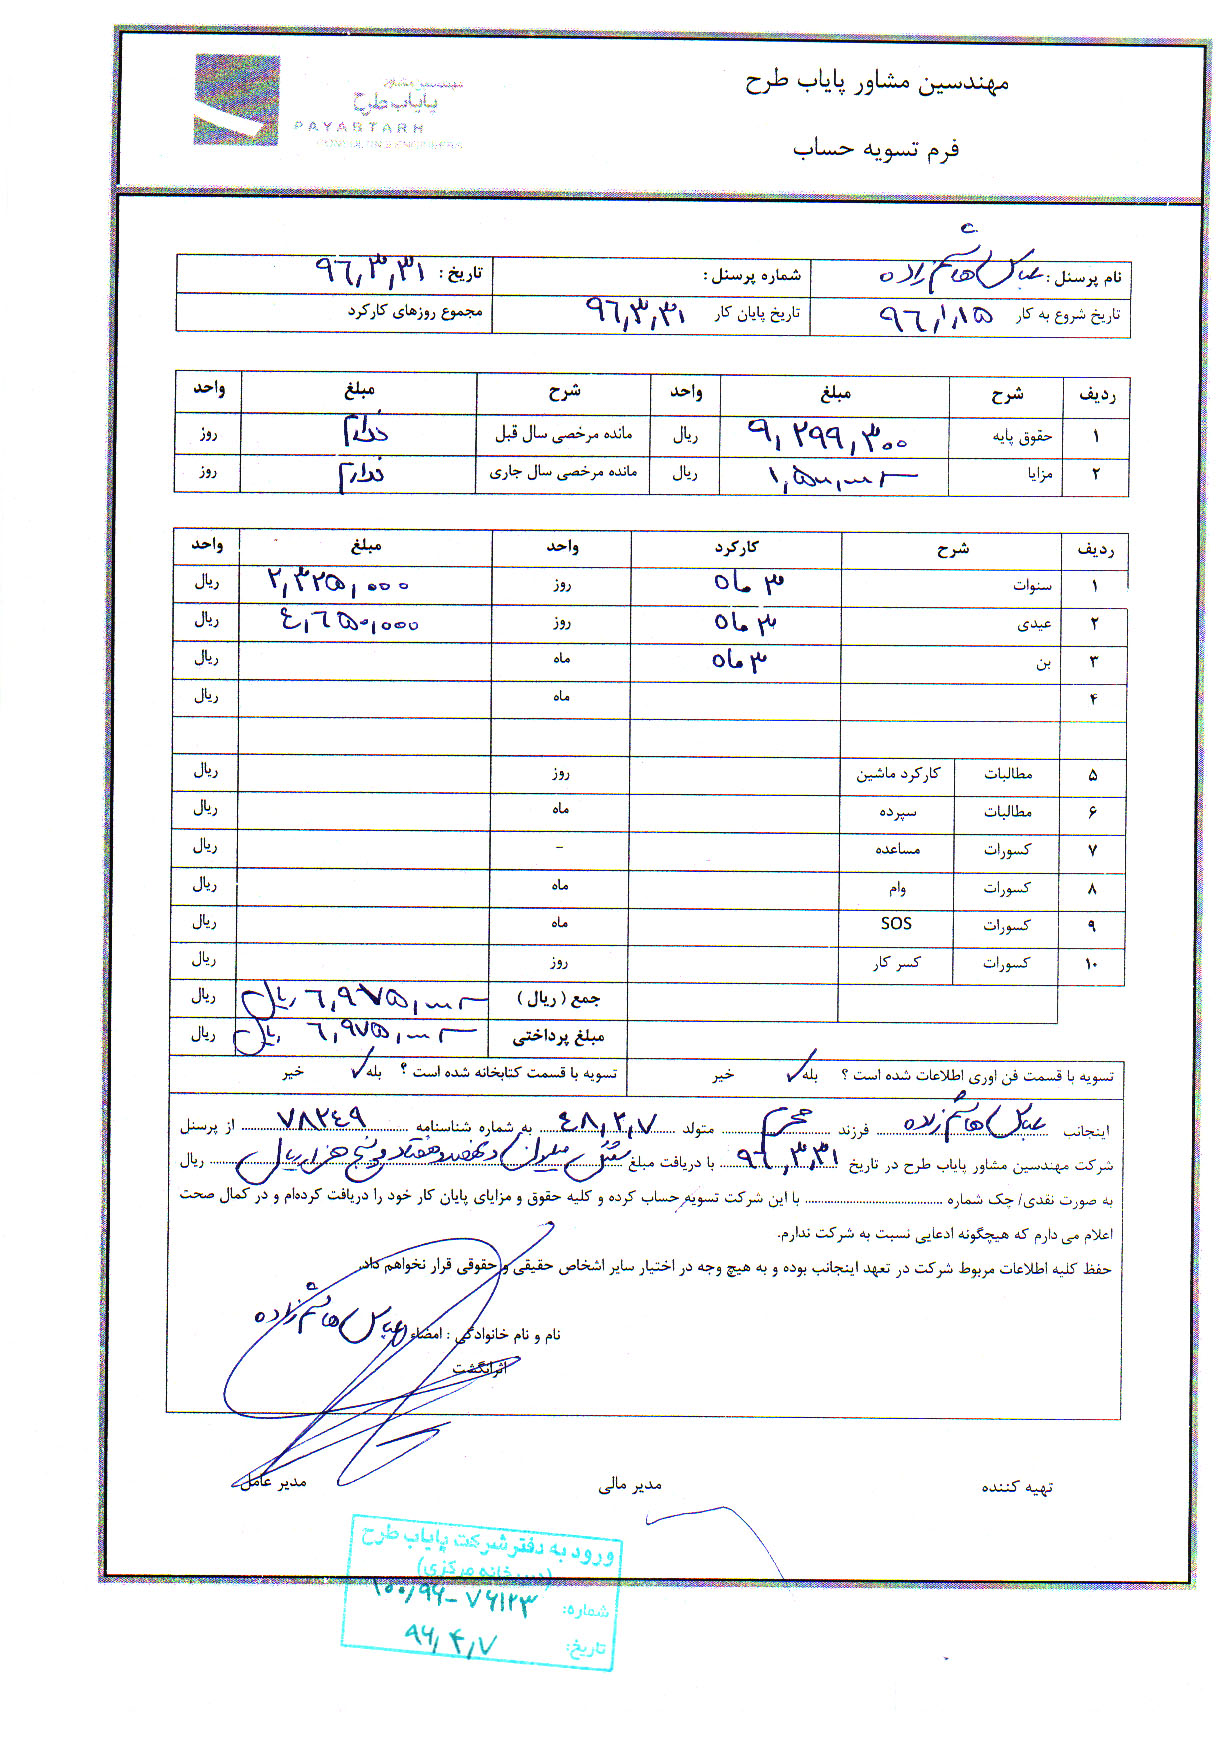 مهندسین مشاور پایاب طرح
فرم تسویه حساب
مهندسین مشاور
پایاب طرح
PAYABTARH
CONSULTING ENGINEERS
نام پرسنل : عباس هاشم زاده شماره پرسنل : تاریخ : ۹۶,۳,۳۱
تاریخ شروع به کار ۹۶,۱,۱۵ تاریخ پایان کار ۹۶,۳,۳۱ مجموع روزهای کارکرد
ردیف شرح مبلغ واحد شرح مبلغ واحد
۱ حقوق پایه ۹,۲۹۹,۳۰۰ ریال مانده مرخصی سال قبل ندارم روز
۲ مزایا ۱,۵۰۰,۰۰۰ ریال مانده مرخصی سال جاری ندارم روز
ردیف شرح کارکرد واحد مبلغ واحد
۱ سنوات ۳ ماه روز ۲,۳۲۵,۰۰۰ ریال
۲ عیدی ۳ ماه روز ۴,۶۵۰,۰۰۰ ریال
۳ بن ۳ ماه ماه ریال
۴ ماه ریال
۵ مطالبات کارکرد ماشین روز ریال
۶ مطالبات سپرده ماه ریال
۷ کسورات مساعده - ریال
۸ کسورات وام ماه ریال
۹ کسورات SOS ماه ریال
۱۰ کسورات کسر کار روز ریال
جمع ( ریال ) ۶,۹۷۵,۰۰۰ ریال ریال
مبلغ پرداختی ۶,۹۷۵,۰۰۰ ریال ریال
تسویه با قسمت فن اوری اطلاعات شده است ؟ بله ✓ خیر تسویه با قسمت کتابخانه شده است ؟ بله ✓ خیر
اینجانب عباس هاشم زاده فرزند محرم متولد ۴۸,۲,۷ به شماره شناسنامه ۷۸۲۴۹ از پرسنل
شرکت مهندسین مشاور پایاب طرح در تاریخ ۹۶,۳,۳۱ با دریافت مبلغ شش میلیون و نهصد و هفتاد و پنج هزار ریال ریال
به صورت نقدی/ چک شماره ........ با این شرکت تسویه حساب کرده و کلیه حقوق و مزایای پایان کار خود را دریافت کرده‌ام و در کمال صحت
اعلام می دارم که هیچگونه ادعایی نسبت به شرکت ندارم.
حفظ کلیه اطلاعات مربوط شرکت در تعهد اینجانب بوده و به هیچ وجه در اختیار سایر اشخاص حقیقی و حقوقی قرار نخواهم داد.
نام و نام خانوادگی : امضاء عباس هاشم زاده
اثرانگشت
تهیه کننده مدیر مالی مدیر عامل
ورود به دفتر شرکت پایاب طرح
(دبیرخانه مرکزی)
شماره: ۱۰۰/۹۶-۷۶۱۲۳
تاریخ: ۹۶,۴,۷